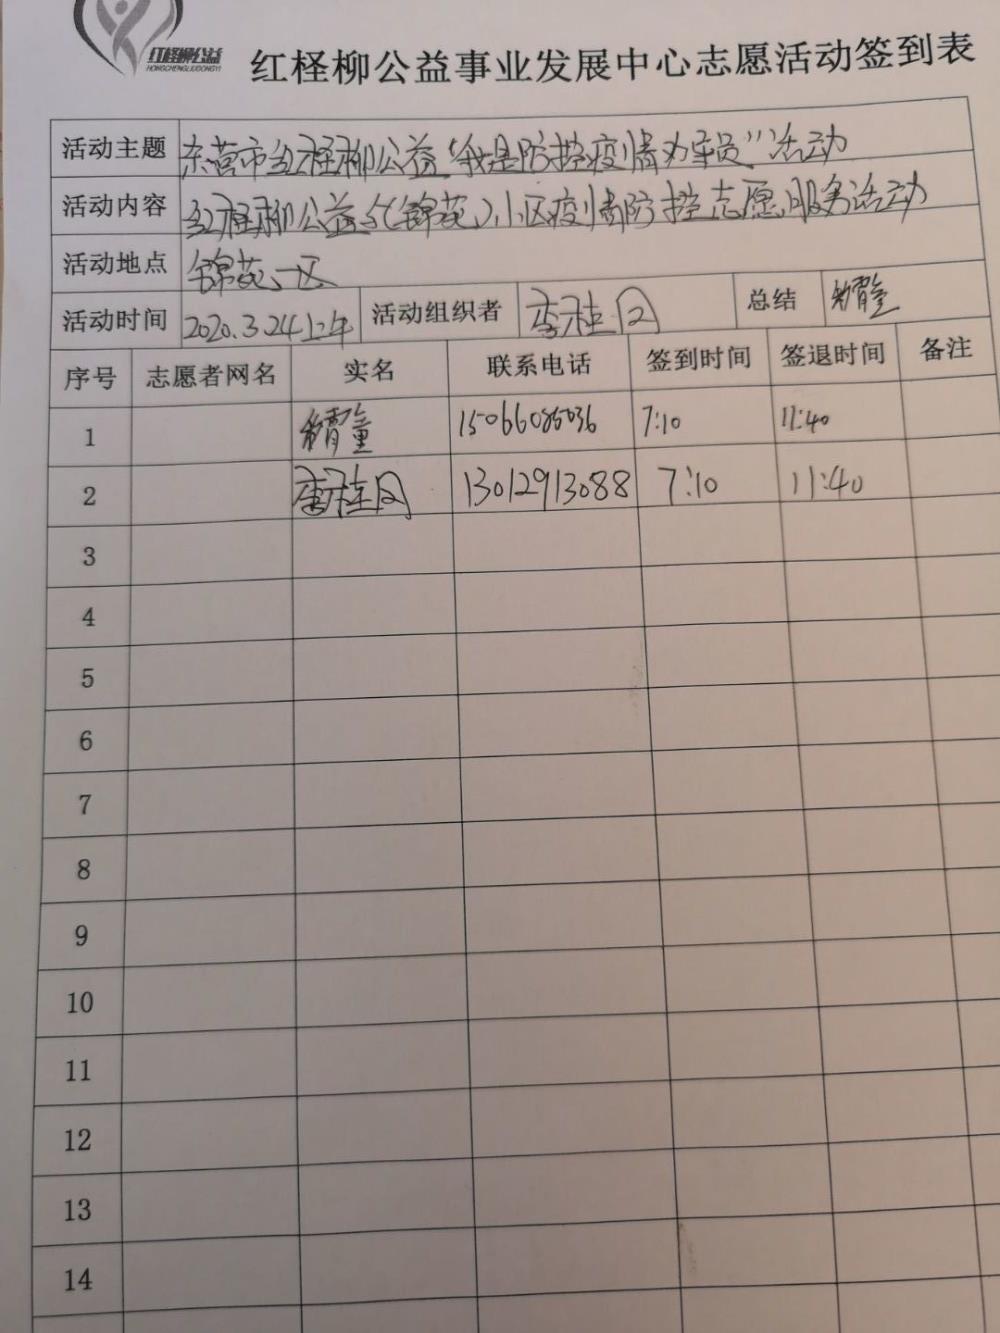 红柽柳公益
HONGCHENGLIUGONGYI
红柽柳公益事业发展中心志愿活动签到表
活动主题 东营市红柽柳公益“我是防控疫情劝导员”活动
活动内容 红柽柳公益与(锦苑)小区疫情防控志愿服务活动
活动地点 锦苑一区
活动时间 2020.3.24上午 活动组织者 李桂月 总结
序号 志愿者网名 实名 联系电话 签到时间 签退时间 备注
1 15066085036 7:10 11:40
2 李桂月 13012913088 7:10 11:40
3
4
5
6
7
8
9
10
11
12
13
14